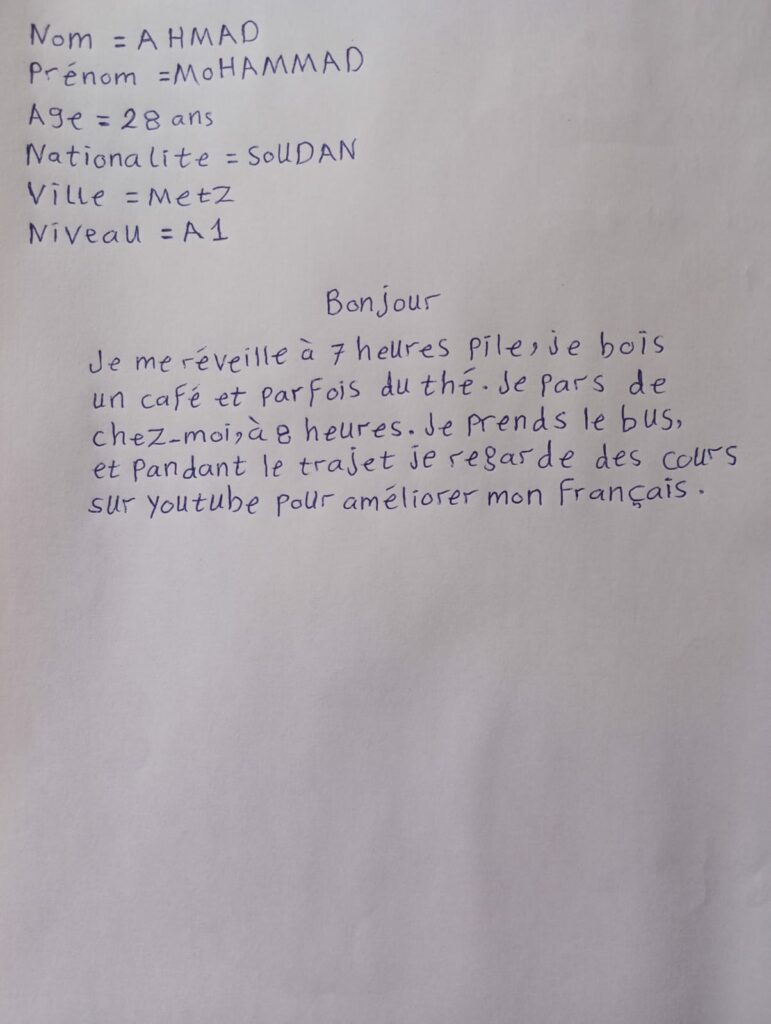 Nom = AHMAD
Prénom = MOHAMMAD
Age = 28 ans
Nationalite = SOUDAN
Ville = Metz
Niveau = A1
Bonjour
Je me réveille à 7 heures pile, je bois
un café et parfois du thé. Je pars de
chez-moi, à 8 heures. Je prends le bus,
et pandant le trajet je regarde des cours
sur youtube pour améliorer mon Français.